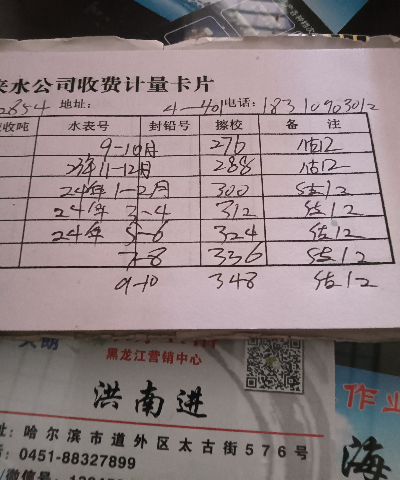 来水公司收费计量卡片
2854 地址: 4-401 电话: 18310903012
收吨 水表号 封铅号 擦校 备 注
9-10月 276 估12
23年11-12月 288 估12
24年1-2月 300 估12
24年 3-4 312 估12
24年 5-6 324 估12
7-8 336 估12
9-10 348 估12
黑龙江营销中心
洪南进
址: 哈尔滨市道外区太古街576号
: 0451-88327899
微信号:
作业
海